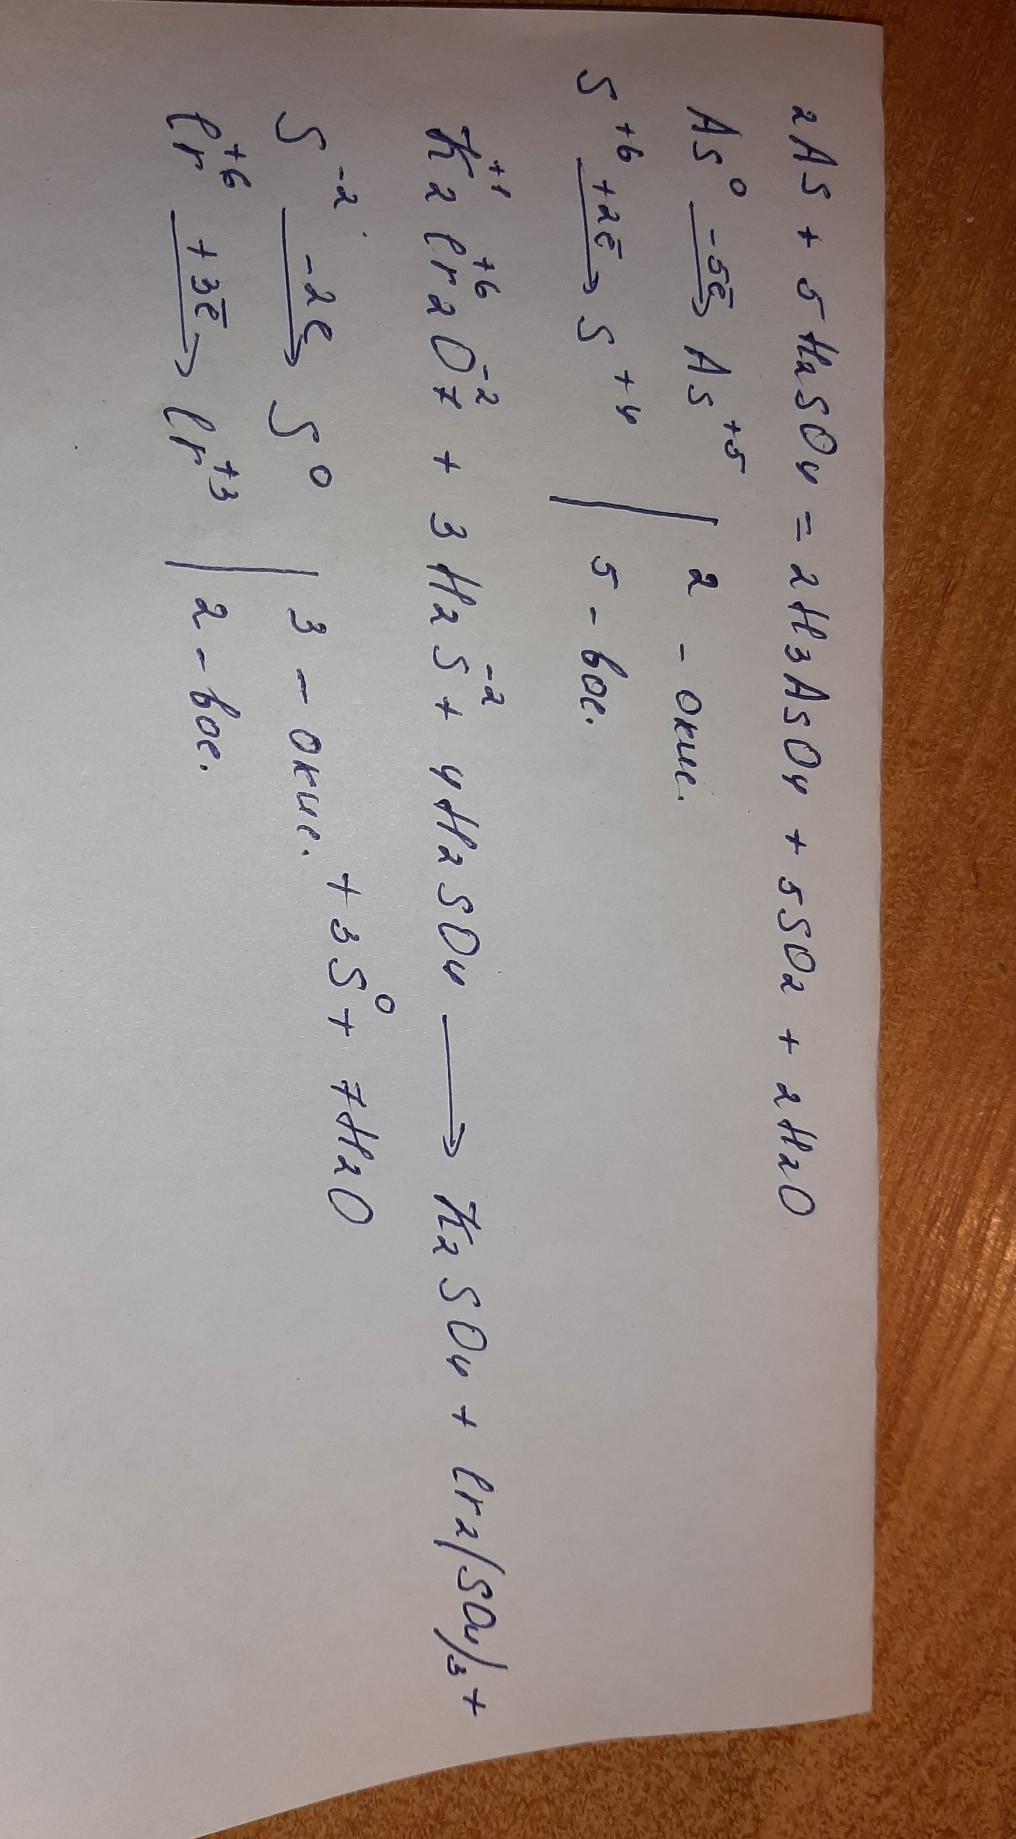 2As + 5H2SO4 = 2H3AsO4 + 5SO2 + 2H2O
As⁰ -5ē→ As⁺⁵ | 2 - окис.
S⁺⁶ +2ē→ S⁺⁴ | 5 - вос.
K2⁺¹Cr2⁺⁶O7⁻² + 3H2S⁻² + 4H2SO4 → K2SO4 + Cr2(SO4)3 +
+ 3S⁰ + 7H2O
S⁻² -2e→ S⁰ | 3 - окис.
Cr⁺⁶ +3ē→ Cr⁺³ | 2 - вос.